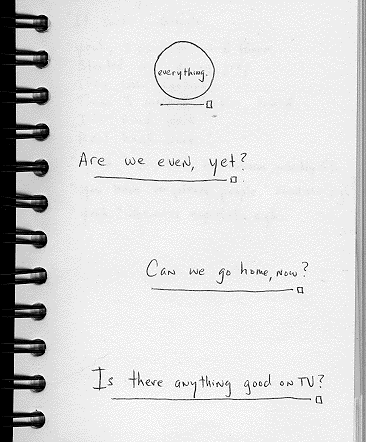 everything.
Are we even, yet?
Can we go home, now?
Is there anything good on TV?